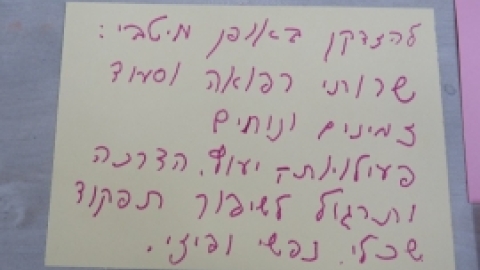 להזדקן באופן מיטבי:
שרותי רפואה וסעוד
זמינים ונוחים
פעילויות, יעוץ, הדרכה
ותרגול לשיפור תפקוד
שכלי, נפשי ופיזי.